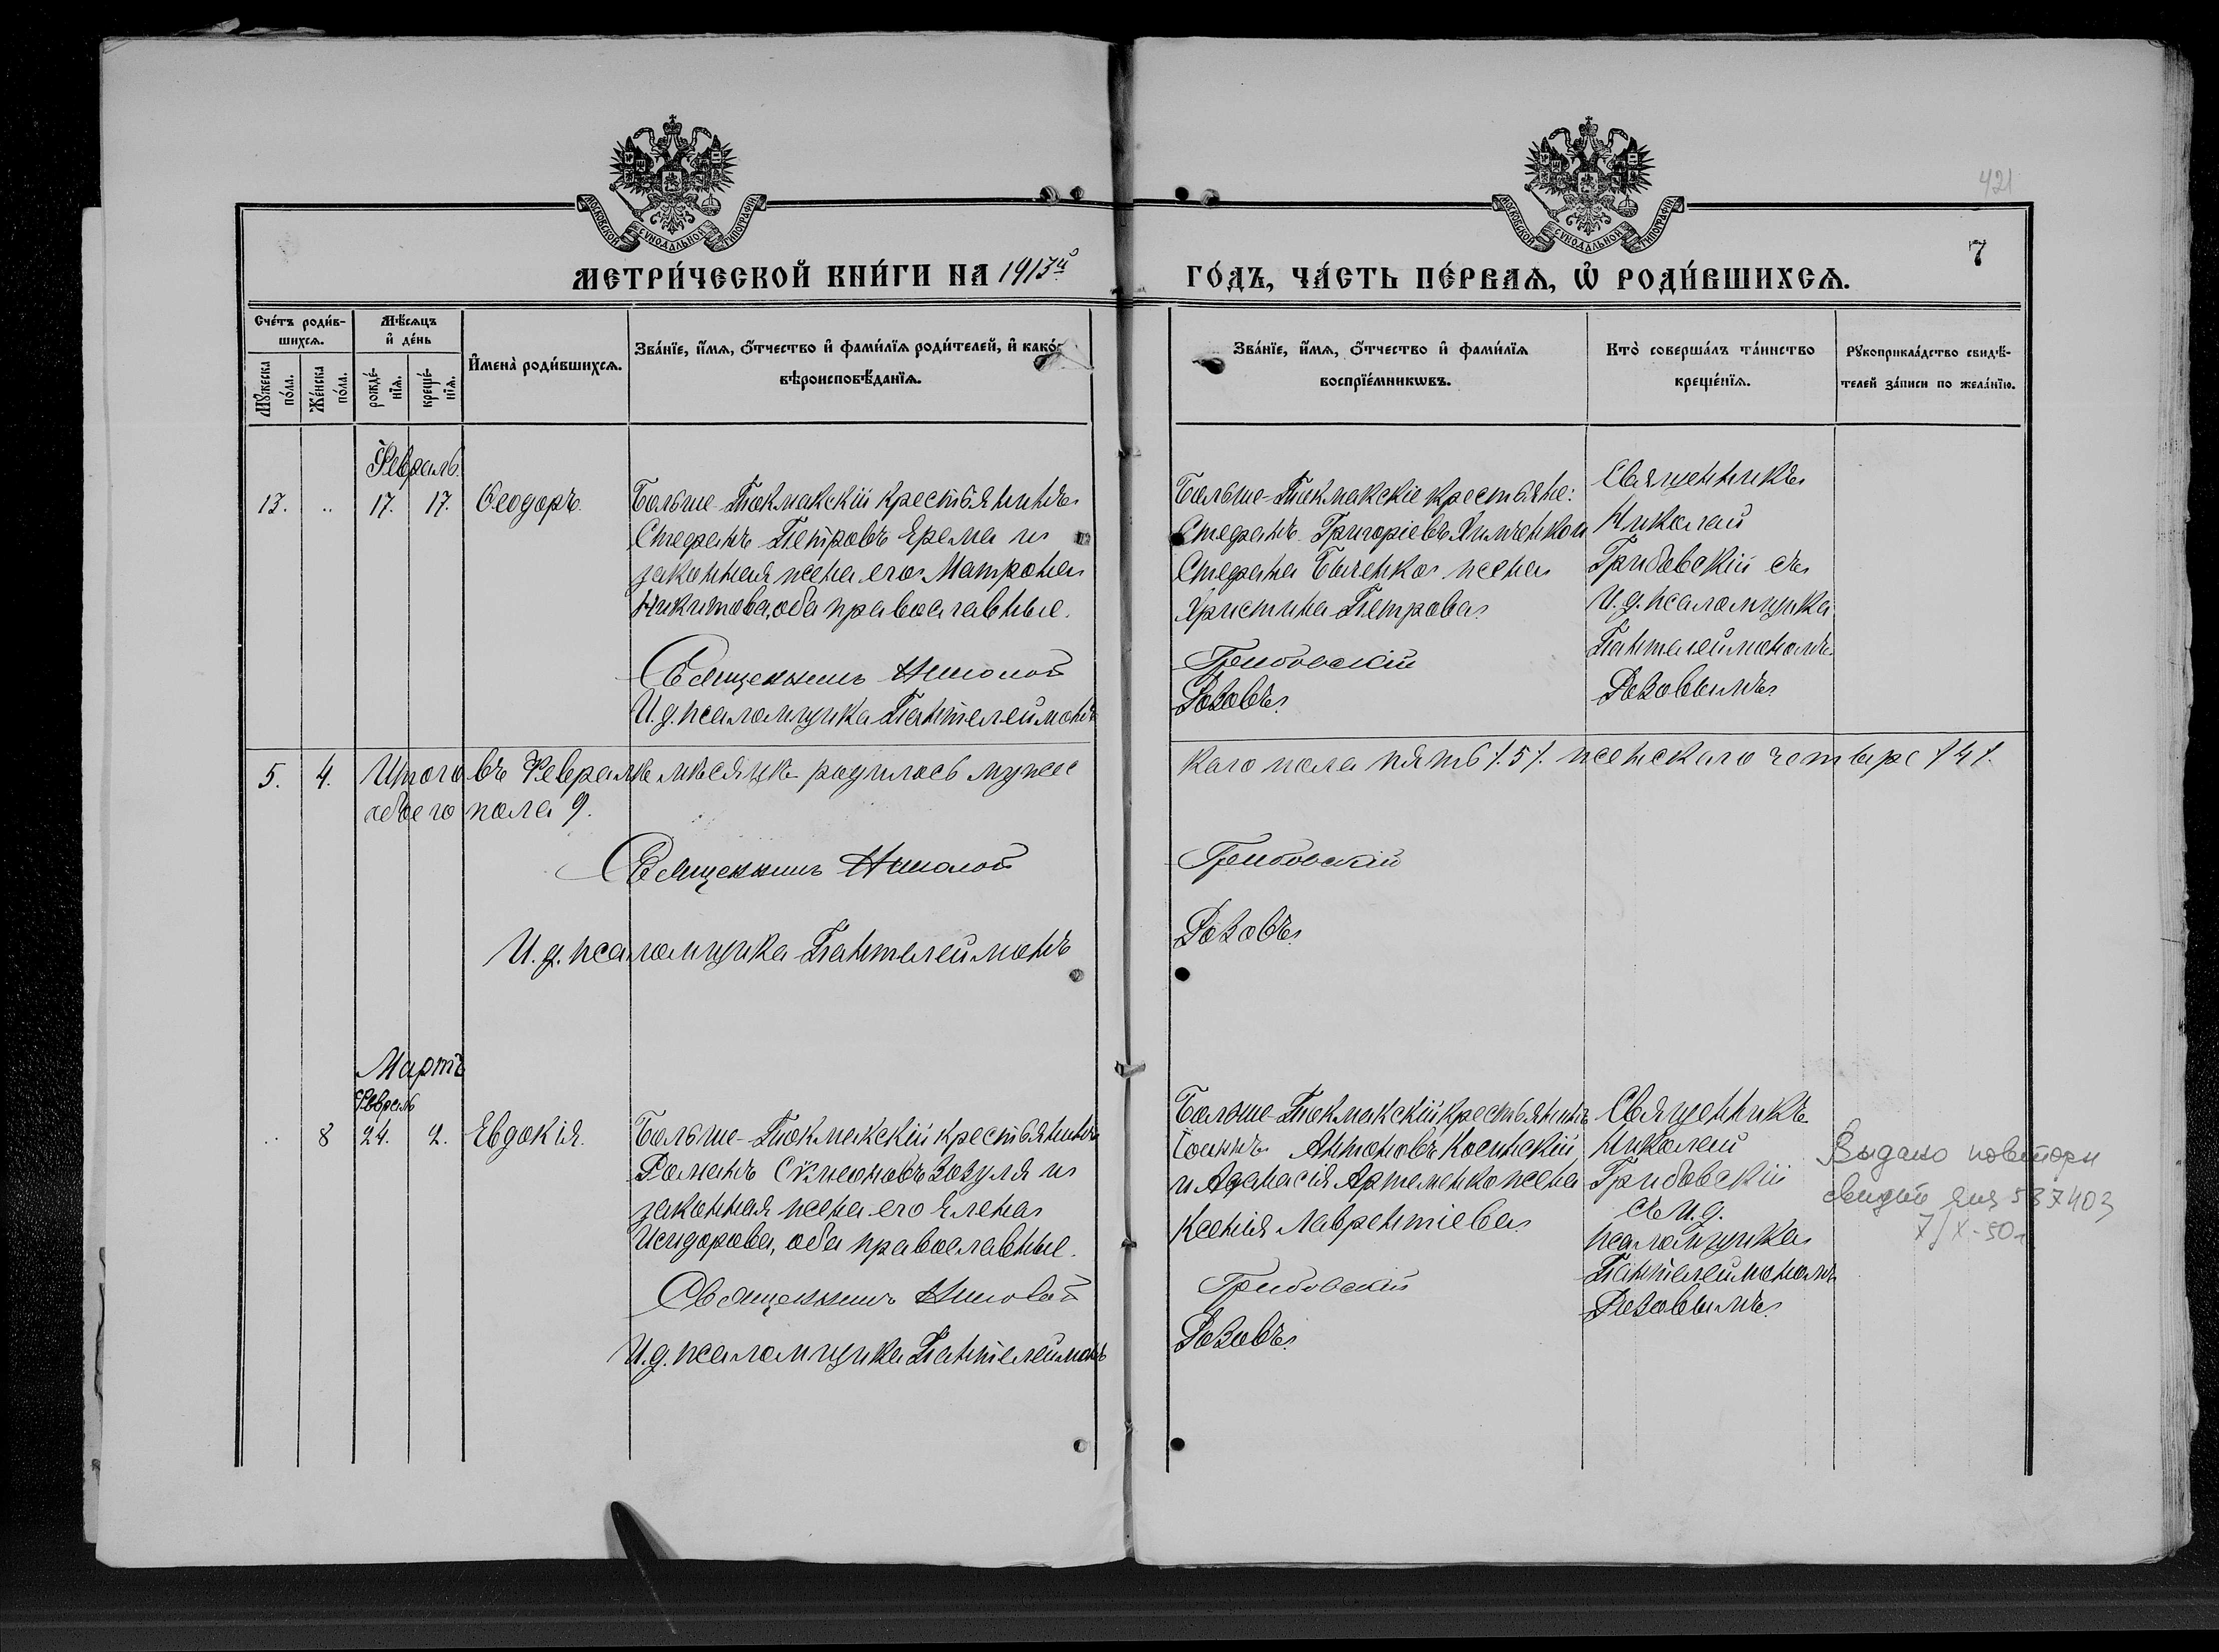 421
7
МОСКОВСКОЙ СѴНОДАЛЬНОЙ ТИПОГРАФІИ
МОСКОВСКОЙ СѴНОДАЛЬНОЙ ТИПОГРАФІИ
МЕТРИ́ЧЕСКОЙ КНИ́ГИ НА 1913й
ГО́ДЪ, ЧА́СТЬ ПЕ́РВАѦ, Ѡ҆ РОДИ́ВШИХСѦ.
Сче́тъ роди́в-
шихсѧ.
Мꙋ́жеска
по́ла.
Же́нска
по́ла.
Мѣ́сѧцъ
и҆ де́нь
рожде́-
нїѧ.
креще́-
нїѧ.
И҆мена̀ роди́вшихсѧ.
Зва́нїе, и҆́мѧ, ѻ҆́тчество и҆ фами́лїѧ роди́телей, и҆ како́г
вѣроисповѣ́данїѧ.
Зва́нїе, и҆́мѧ, ѻ҆́тчество и҆ фами́лїѧ
воспрїе́мникѡвъ.
Кто̀ соверша́лъ та́инство
креще́нїѧ.
Рꙋкоприкла́дство свидѣ́-
телей за́писи по жела́нїю.
Февраль.
13. .. 17. 17. Ѳеодоръ.
Больше-Токмакскій крестьянинъ
Стефанъ Петровъ Ерема и
законная жена его Матрона
Никитова, оба православные.
Священникъ Николай
И.д. псаломщика Пантелеймонъ
Больше-Токмакскіе крестьяне:
Стефанъ Григоріевъ Химченко и
Стефана Баленко жена
Христина Петрова.
Грибовскій
Розовъ.
Священникъ
Николай
Грибовскій съ
И.д. псаломщика
Пантелеймономъ
Розовымъ
5. 4. Итого въ Февралѣ мѣсяцѣ родилось мужес
каго пола пять /.5/. женскаго четыре /4/.
обоего пола 9.
Священникъ Николай
Грибовскій
И.д. псаломщика Пантелеймонъ
Розовъ.
Мартъ
Февраль
.. 8 24. 2. Евдокія.
Больше-Токмакскій крестьянинъ
Романъ Сѵмеоновъ Зозуля и
законная жена его Елена
Исидорова, оба православные.
Священникъ Николай
И.д. псаломщика Пантелеймонъ
Больше-Токмакскій крестьянинъ
Іоаннъ Антоновъ Косинскій
и Аѳанасія Артеменко жена
Ксенія Лаврентіева.
Грибовскій
Розовъ.
Священникъ
Николай
Грибовскій
съ И.д.
псаломщика
Пантелеймономъ
Розовымъ.
Выдано повторн
свидет 587403
7/X-50г